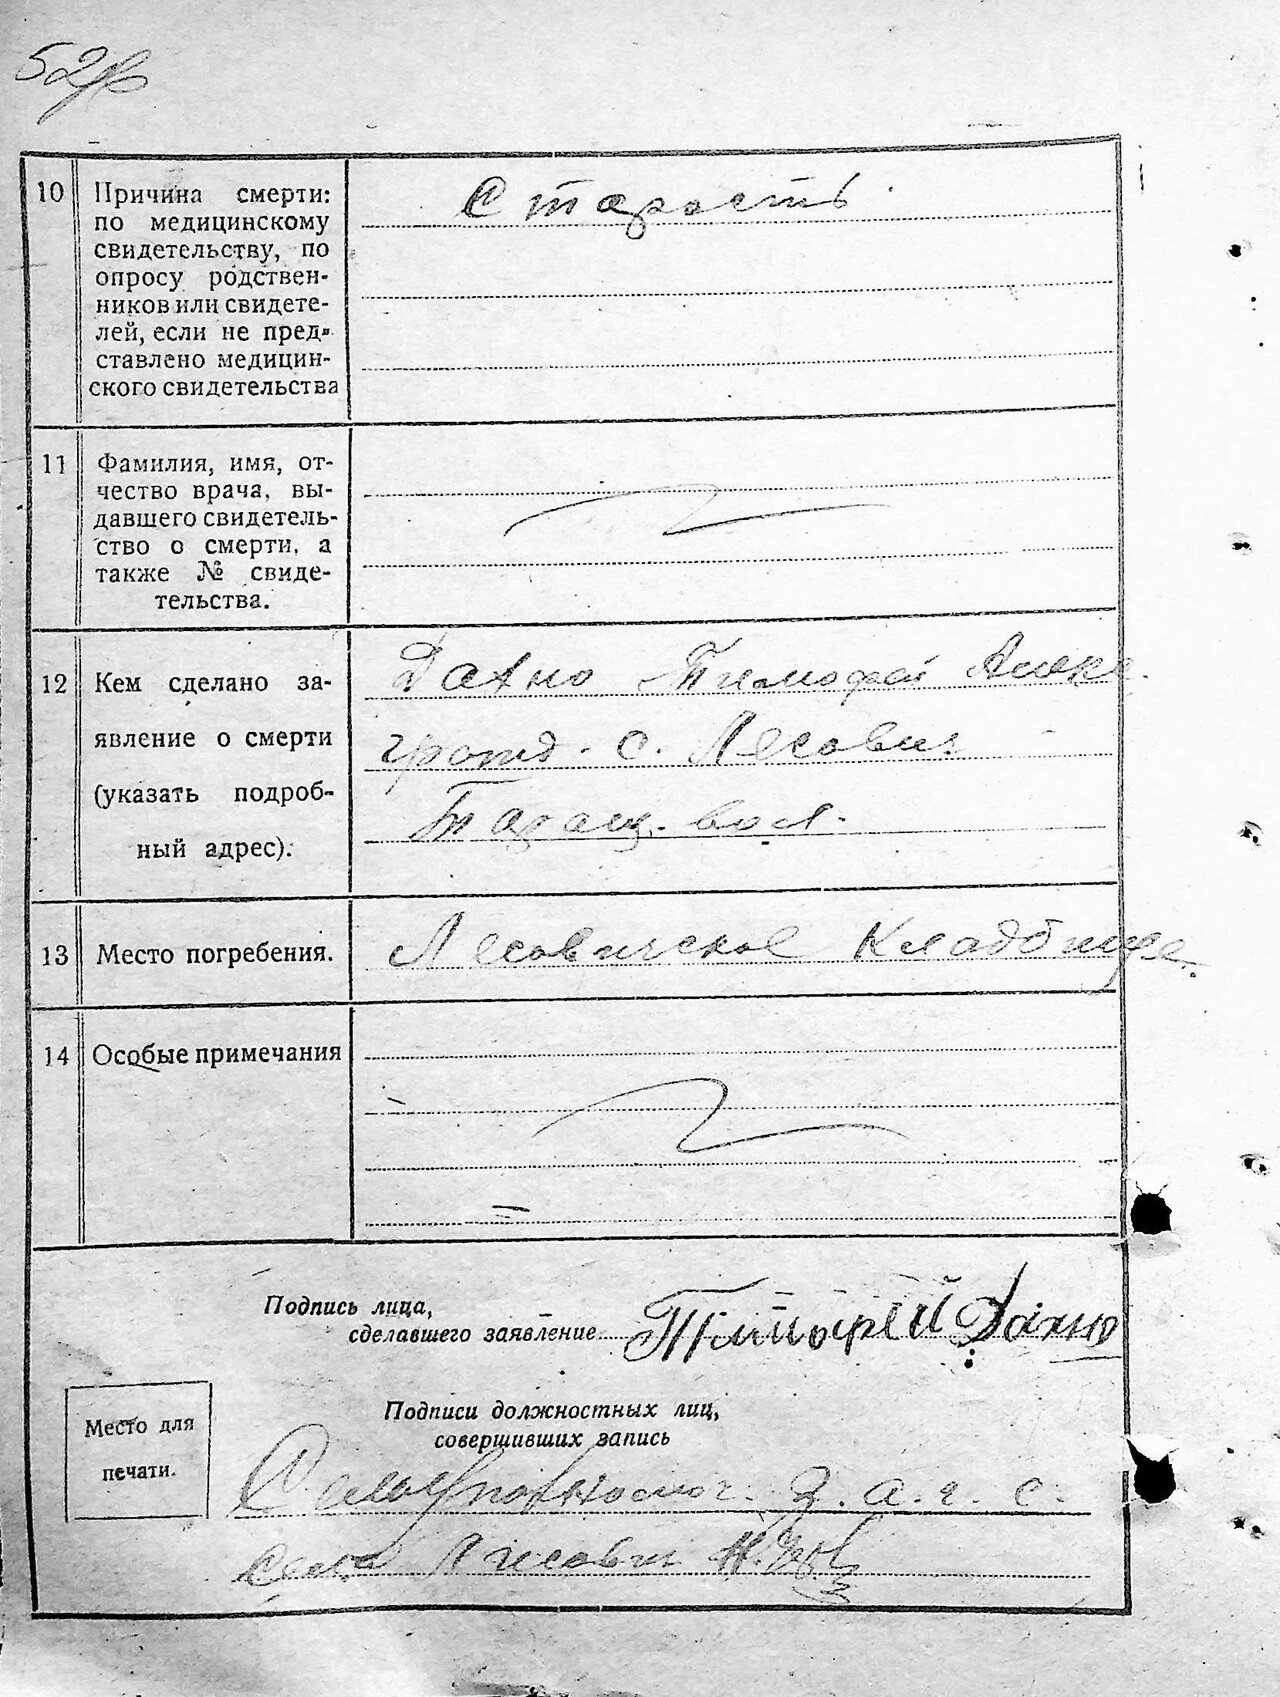 52
10 Причина смерти:
по медицинскому
свидетельству, по
опросу родствен-
ников или свидете-
лей, если не пред-
ставлено медицин-
ского свидетельства
Старость
11 Фамилия, имя, от-
чество врача, вы-
давшего свидетель-
ство о смерти, а
также № свиде-
тельства.
12 Кем сделано за-
явление о смерти
(указать подроб-
ный адрес).
Дахно Тимофей
с. Лесович
Таращ. вол.
13 Место погребения.
Лесовичское Кладбище.
14 Особые примечания
Подпись лица,
сделавшего заявление
Тимофей Дахно
Место для
печати.
Подписи должностных лиц,
совершивших запись
З. а. г. с.
села Лисович